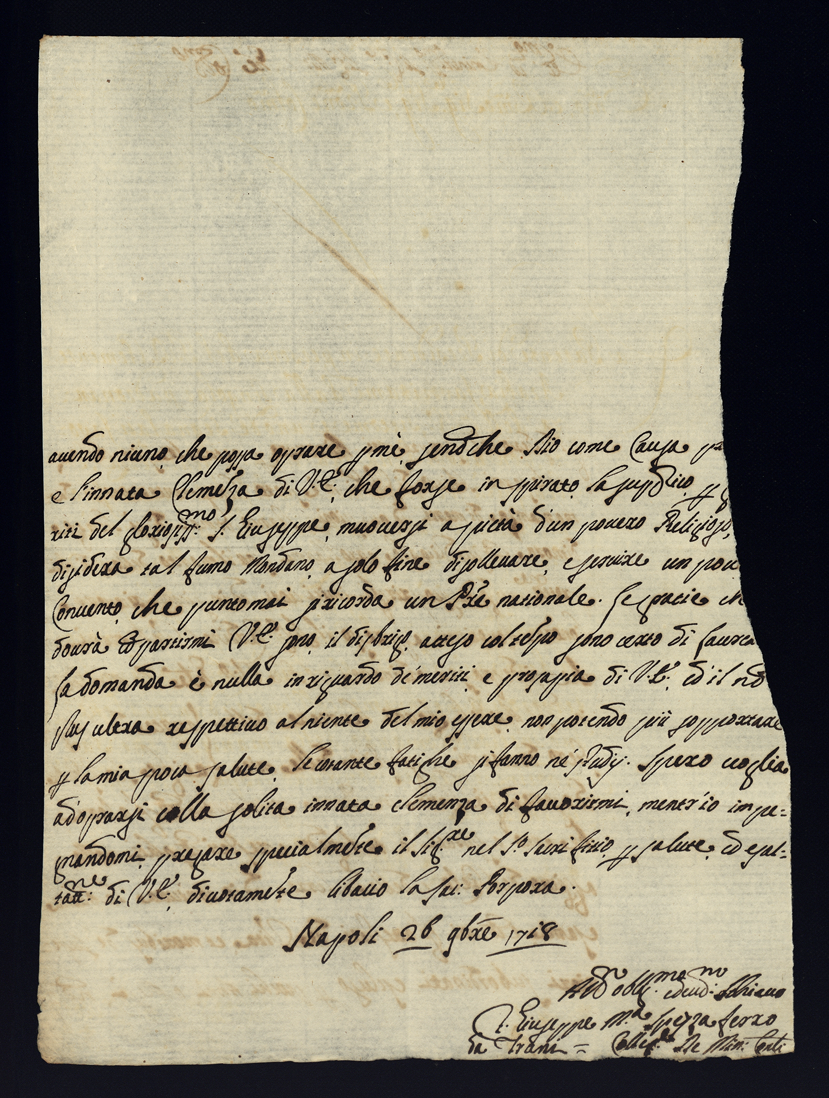 auendo niuno, che possa oprare p mè, senõche Dio come Causa
e l'innata Clemeza di V.E. che forse inspirato
riti del gloriosiss:mo S. Giuseppe, muouersi a pietà d'un pouero Religioso,
disidera tal fumo Mondano, a solo fine di solleuare, e seruire un pou
Conuento, che punto mai si ricorda un Pre nationale. Le gracie ch
dourà compartirmi V.E. sono il disbrigo, atteso col tempo sono certo di
La domanda è nulla in riguardo de meriti, e prosapia di V.E. ed il
plus ultra respettiuo al niente del mio essere, non potendo più sopportare
p la mia poca salute, le tante fatighe si fanno ne studij. Spero uoglia
adoprarsi colla solita innata Clemenza di fauorirmi, mentr'io impe-
gnandomi pregare specialmete il Sig.re nel S.o Sacrificio p salute, ed esal-
tatt:ne di V.E. diuotamete bacio la sac: Porpora.
Napoli 26 9bre 1718
obblig.mo
F. Giuseppe M.a Spezza ferro
da Trani =